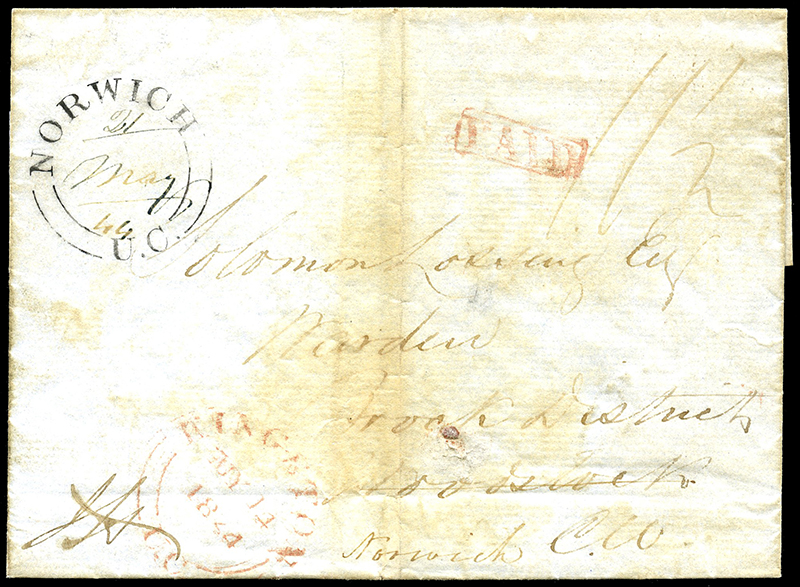 NORWICH
21
May
44
U.C.
PAID
1/1½
Solomon Lossing Esq
Warden
Brock District
Woodstock
Norwich C.W.
KINGSTON
MY 14
1844
U.C.